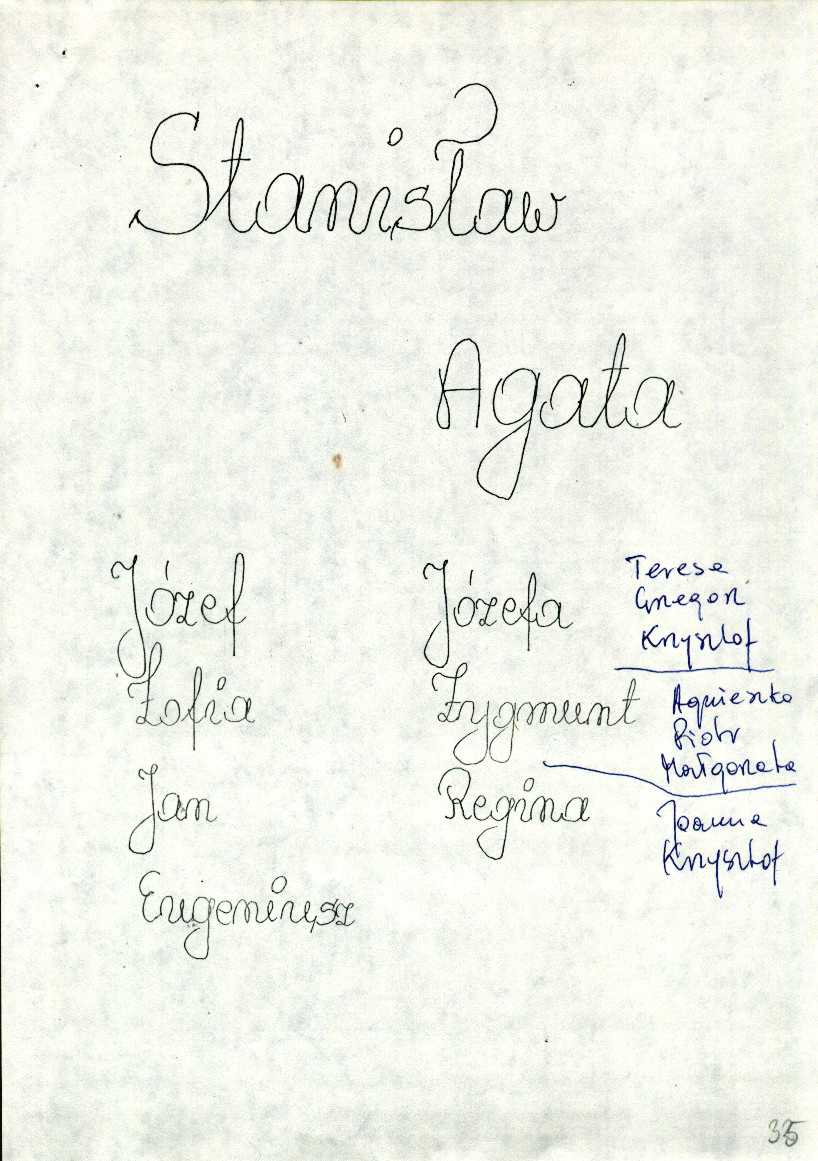 Stanisław
Agata
Józef
Zofia
Jan
Eugeniusz
Józefa
Zygmunt
Regina
Teresa
Grzegorz
Krzysztof
Agnieszka
Piotr
Małgorzata
Joanna
Krzysztof
35